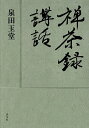 禅茶録
講話
泉田玉堂